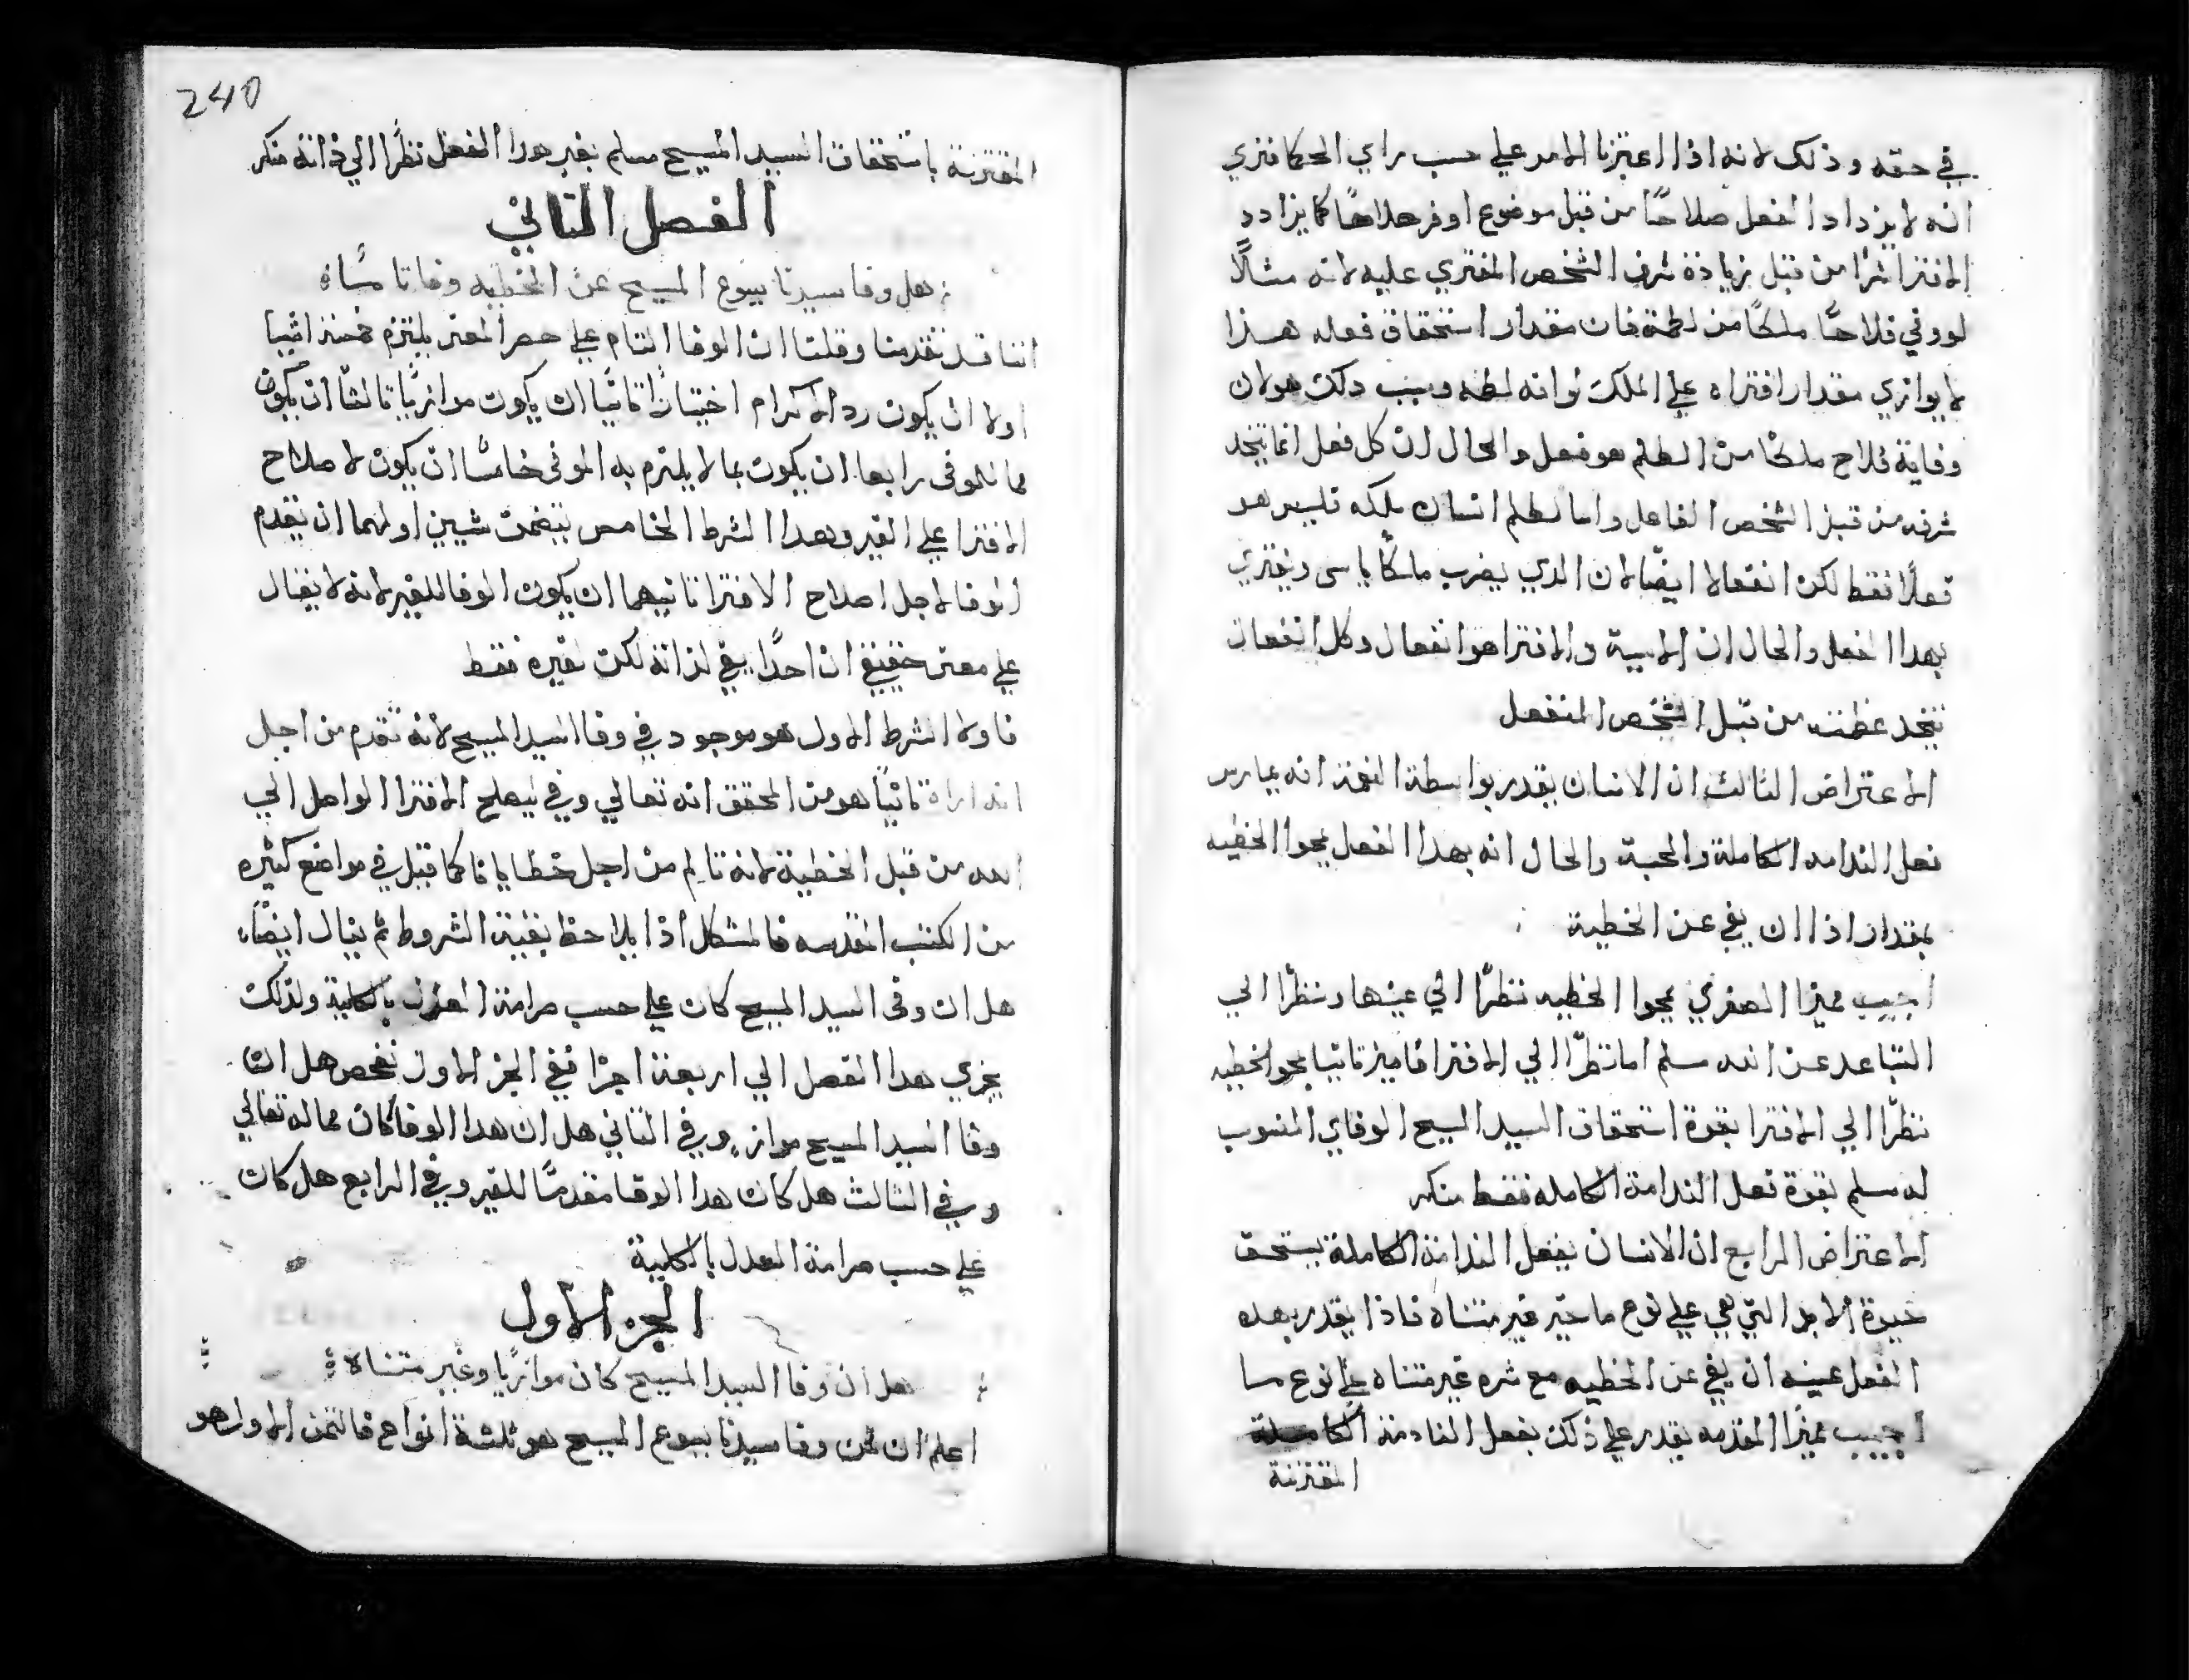 في حقه وذلك لانه اذا اعتبرنا الامر علي حسب راي الحكما فنري
انه لا يزداد الفعل صلاحًا من قبل موضوع اوفر صلاحًا كما يزداد
الافترا شرًا من قبل زيادة شرف الشخص المفتري عليه لانه مثالًا
لو وفي فلاحًا ملكًا من لطمة فان مقدار استحقاق فعله هذا
لا يوازي مقدار افتراه علي الملك لو انه لطمه وسبب دلك هو لان
وقاية فلاح ملكًا من اللطم هو فعل والحال ان كل فعل انما يتخد
شرفه من قبل الشخص الفاعل واما لطم انسان ملكه فليس هو
فعلًا فقط لكن انفعالا ايضًا لان الدي يضرب ملكًا يا سي ويفتري
بهدا الفعل والحال ان الاسية والافترا هو انفعال وكل انفعال
يتخد عظمته من قبل الشخص المنفعل
الاعتراض الثالث ان الانسان يقدر بواسطة النعمة انه يمارس
فعل الندامه الكاملة والمحبة والحال انه بهدا الفعل يمحوا الخطيه
بمقدار اذا ان يفي عن الخطية
اجيب مميزا الصغري يمحوا الخطيه نظرًا الي عينها ونظرًا الي
التباعد عن الله مسلم اما نظرًا الي الافترا فاميز تانيا يمحو الخطيه
نظرًا الي الافترا بقوة استحقاق السيد المسيح الوفاي المنسوب
له مسلم بقوة فعل الندامة الكامله فقط منكر
الاعتراض الرابع ان الانسان بفعل الندامة الكاملة يستحق
خيرة الابد التي هي علي نوع ما خير غير متناه فاذا يقدر بهده
الفعل عينه ان يفي عن الخطيه مع شره غير متناه علي نوع ما
اجيب مميزًا المقدمه يقدر علي ذلك بفعل الندامة الكاملة
المقترنة
240
المقترنة باستحقاق السيد المسيح مسلم بغير هدا الفعل نظرًا الي ذاته منكر
الفصل التاني
هل وفا سيدنا يسوع المسيح عن الخطيه وفا تامًا
اننا قد تقدمنا وقلنا ان الوفا التام علي حصر المعني يلتزم خمسة اشيا
اولا ان يكون رد الاكرام اختياريًا تانيًا ان يكون موازيًا تالثًا ان يكون
مما للموفي رابعا ان يكون بما لا يلتزم به الموفي خامسًا ان يكون لاصلاح
الافترا علي الغير وهدا الشرط الخامس يتضمن شيين اولهما ان يقدم
الوفا لاجل اصلاح الافترا تانيهما ان يكون الوفا للغير لانه لا يقال
علي معني حقيقي ان احدًا يفي لذاته لكن لغيره فقط
فاولا الشرط الاول هو موجود في وفا السيد المسيح لانه تقدم من اجل
انه اراد تانيًا هو من المحقق انه تعالي وفي ليصلح الافترا الواصل الي
الله من قبل الخطية لانه تالم من اجل خطايانا كما قيل في مواضع كثيره
من الكتب المقدسه فالمشكل اذا يلاحظ بقية الشروط ثم يقال ايضًا
هل ان وفي السيد المسيح كان علي حسب صرامة العدل بالكلية ولذلك
يجزي هدا الفصل الي اربعة اجزا ففي الجز الاول نفحص هل ان
وفا السيد المسيح مواز وفي التاني هل ان هدا الوفا كان مما له تعالي
وفي الثالث هل كان هدا الوفا مقدمًا للغير وفي الرابع هل كان
علي حسب صرامة العدل بالكلية
الجز الاول
هل ان وفا السيد المسيح كان موازيًا وغير متناه
اعلم ان ثمن وفا سيدنا يسوع المسيح هو ثلثة انواع فالثمن الاول هو